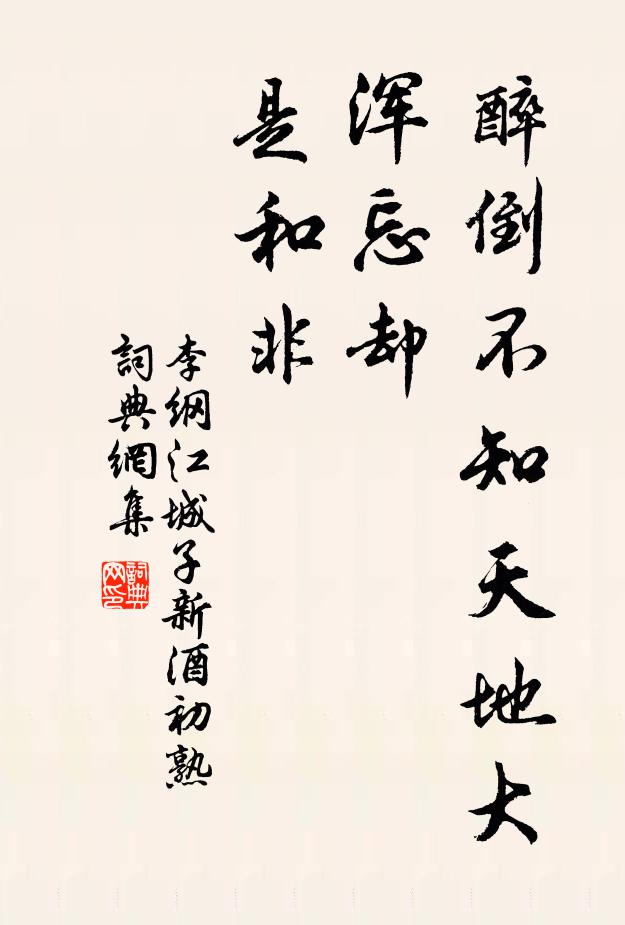 醉倒不知天地大
浑忘却
是和非
李纲江城子新酒初熟
詞典網集
詞典网印